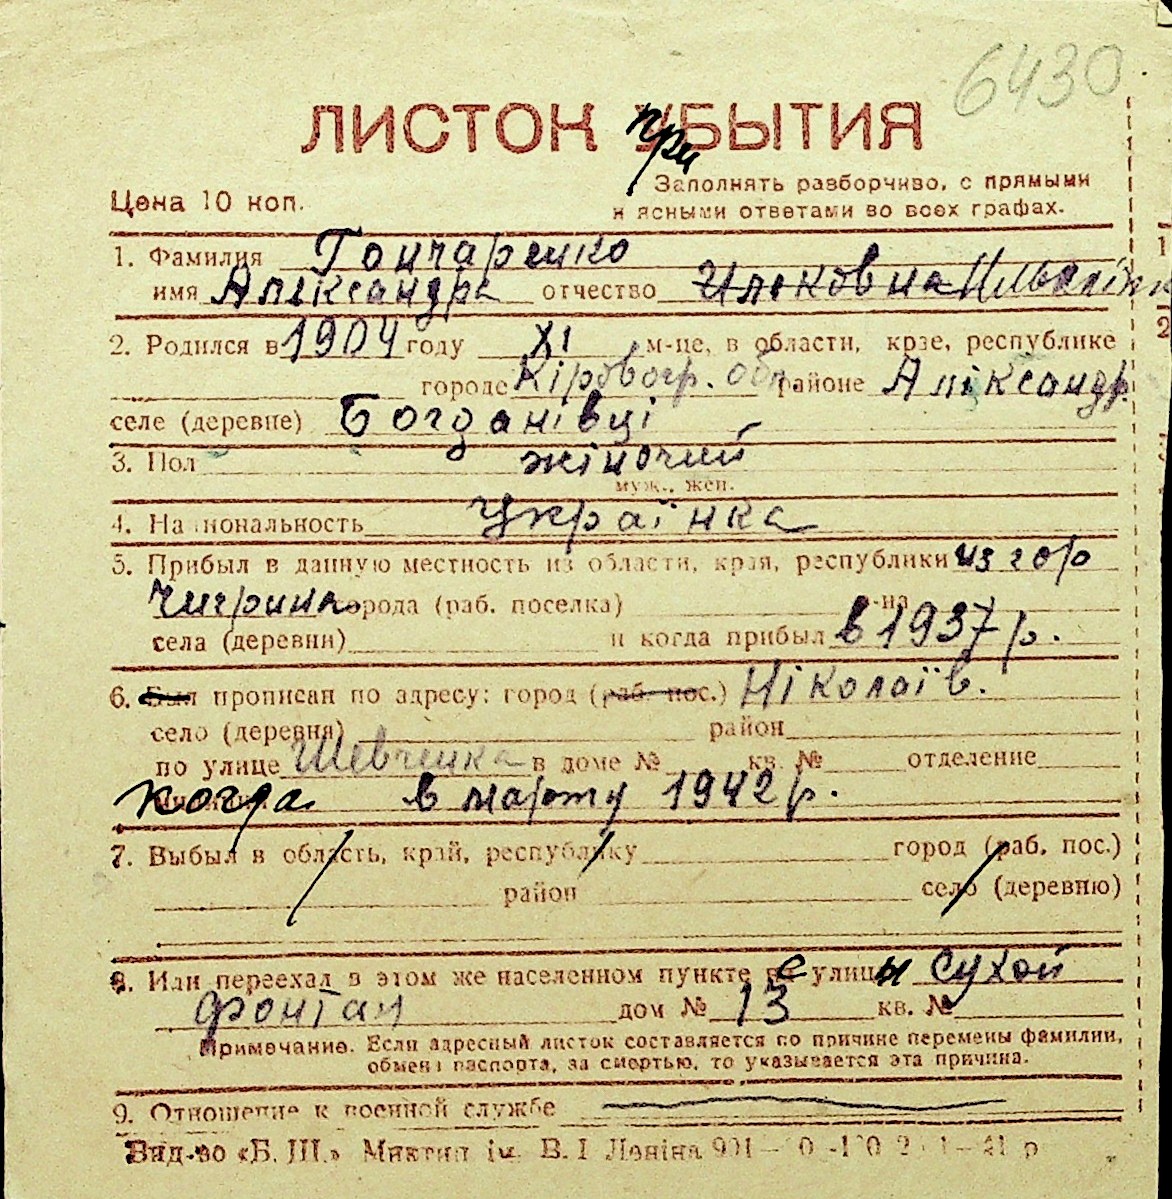 6430
ЛИСТОК УБЫТИЯ
при
Заполнять разборчиво, с прямыми
Цена 10 коп.
и ясными ответами во всех графах.
1. Фамилия Гончаренко
имя Александра отчество
2. Родился в 1904 году XI м-це, в области, крае, республике
городе Кіровогр. обл районе Александр.
селе (деревне) Богданівці
3. Пол жіночий
муж., жен.
4. Национальность Українка
5. Прибыл в данную местность из области, края, республики из гор
Чигрина города (раб. поселка) р-на
села (деревни) и когда прибыл в 1937 р.
6. Был прописан по адресу: город (раб. пос.) Ніколаїв.
село (деревня) район
по улице Шевченка в доме № кв. № отделение
когда в марту 1942 р.
7. Выбыл в область, край, республику город (раб. пос.)
район село (деревню)
8. Или переехал в этом же населенном пункте с улицы Сухой
Фонтан дом № 13 кв. №
Примечание. Если адресный листок составляется по причине перемены фамилии,
обмена паспорта, за смертью, то указывается эта причина.
9. Отношение к военной службе
Вид-во «Б. Ш.» Миктип ім. В. І Леніна